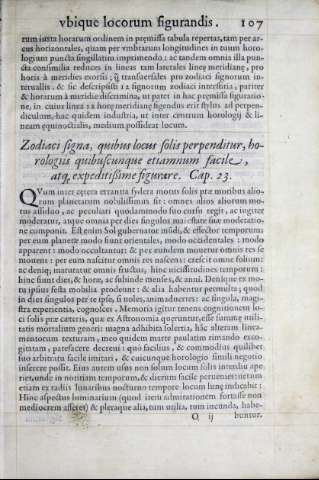 vbique locorum figurandis. 107
rum iuxta horarum ordinem in præmissa tabula repertas, tam per ar-
cus horizontales, quam per vmbrarum longitudines in tuum horo-
logium puncta singillatim imprimendo: ac tandem omnia illa pun-
cta consimilia reduces in lineas tam laterales lineę meridianę, pro
horis à meridie exorsis; q̃ transuersales pro zodiaci signorum in-
teruallis. & sic descripsisti 12 signorum zodiaci interstitia, pariter
& horarum à meridie discrimina, vt patet in hac præmissa figuratio-
ne, in cuius linea 12 horę meridianę figendus erit stylus ad perpen-
diculum, hac quidem industria, vt inter centrum horologij & li-
neam equinoctialis, medium possideat locum.
Zodiaci signa, quibus locus solis perpenditur, ho-
rologijs quibuscunque etiamnum facile,
atq, expeditissime figurare. Cap. 23.
QVum inter cętera errantia sydera motus solis præ motibus alio-
rum planetarum nobilissimus sit: omnes alios aliorum mo-
tus assiduo, ac peculiari quodammodo suo cursu regit, ac iugiter
moderatur, atque omnia per dies singulos maiestate suæ moderatio-
ne componit. Est enim Sol gubernator mũdi, & effector temporum:
per eum planetę modo fiunt orientales, modo occidentales: modo
apparent: modo occultantur: & per eundem mouetur omnis res se
mouens: per eum nascitur omnis res nascens: crescit omne folium:
ac deniq; maturatur omnis fructus, hinc vicissitudines temporum:
hinc fiunt dies, & horæ, ac subinde menses, & anni. Denique ex mo-
tu ipsius festa mobilia prodeunt: & alia habentur permulta; quod
in dies singulos per te ipse, si noles, animaduertes: ac singula, magi-
stra experientia, cognosces. Memoria igitur tenens cognitionem lo-
ci solis præ cæteris, quæ ex Astronomia q̃runtur, esse summæ vtili-
tatis mortalium generi: magna adhibita solertia, hãc alteram linea-
mentorum texturam, meo quidem marte paulatim rimando exco-
gitatam, patefacere decreui: quò facilius, & commodius quilibet
suo arbitratu facile imitari, & cuicunque horologio simili negotio
inserere possit. Eius autem vsus non solum locum solis interdiu ape
riet, vnde in notitiam temporum, & dierum facile peruenies: verum
etiam ex radijs lunaribus nocturno tempore locum lunę indicabit:
Hinc aspectus luminarium (quod item admirationem fortasse non
mediocrem afferet) & pleraque alia, tum vtilia, tum iucunda, habe-
Q ij buntur.